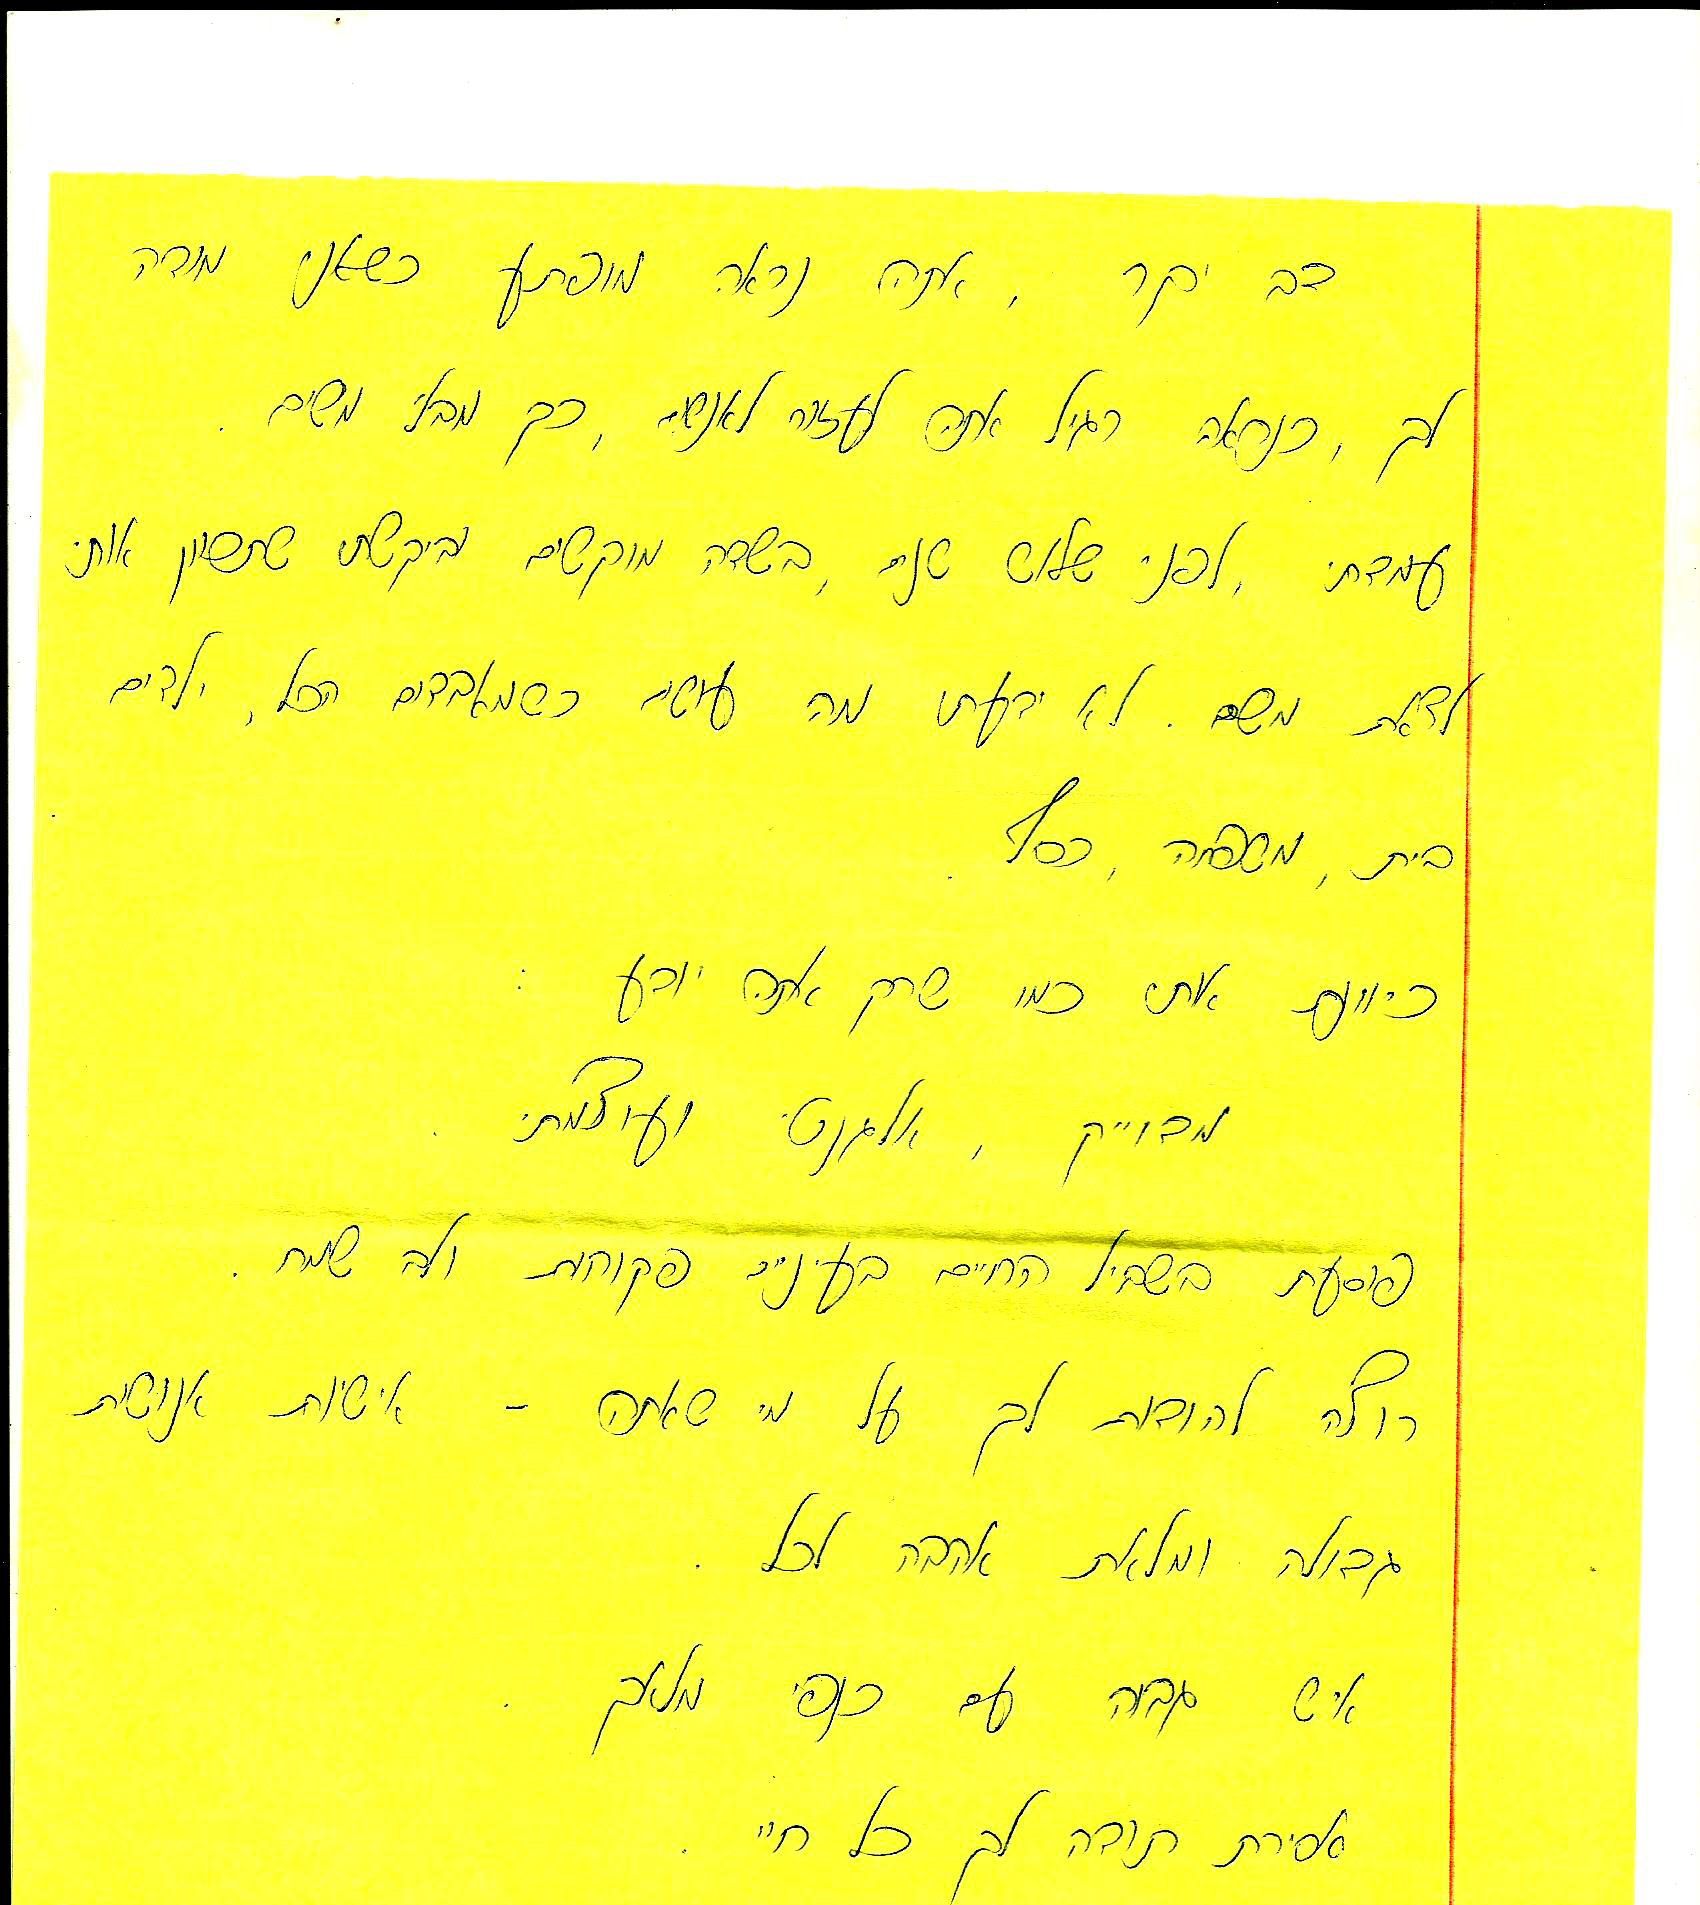 דב יקר , אתה נראה מופתע כשאני מודה
לך , כנראה רגיל אתה לעזור לאנשים , כך מבלי משים .
עמדתי , לפני שלוש שנים , בשדה מוקשים וביקשתי שתכוון אותי
לצאת משם . לא ידעתי מה עושים כשמאבדים הכל , ילדים
בית , משפחה , כסף .
כיוונת אותי כמו שרק אתה יודע :
מדוייק , אלגנטי ועוצמתי .
פוסעת בשביל החיים בעיניים פקוחות ולב שמח .
רוצה להודות לך על מי שאתה - אישיות אנושית
גדולה ומלאת אהבה לכל .
איש גבוה עם כנפי מלאך .
אסירת תודה לך כל חיי .